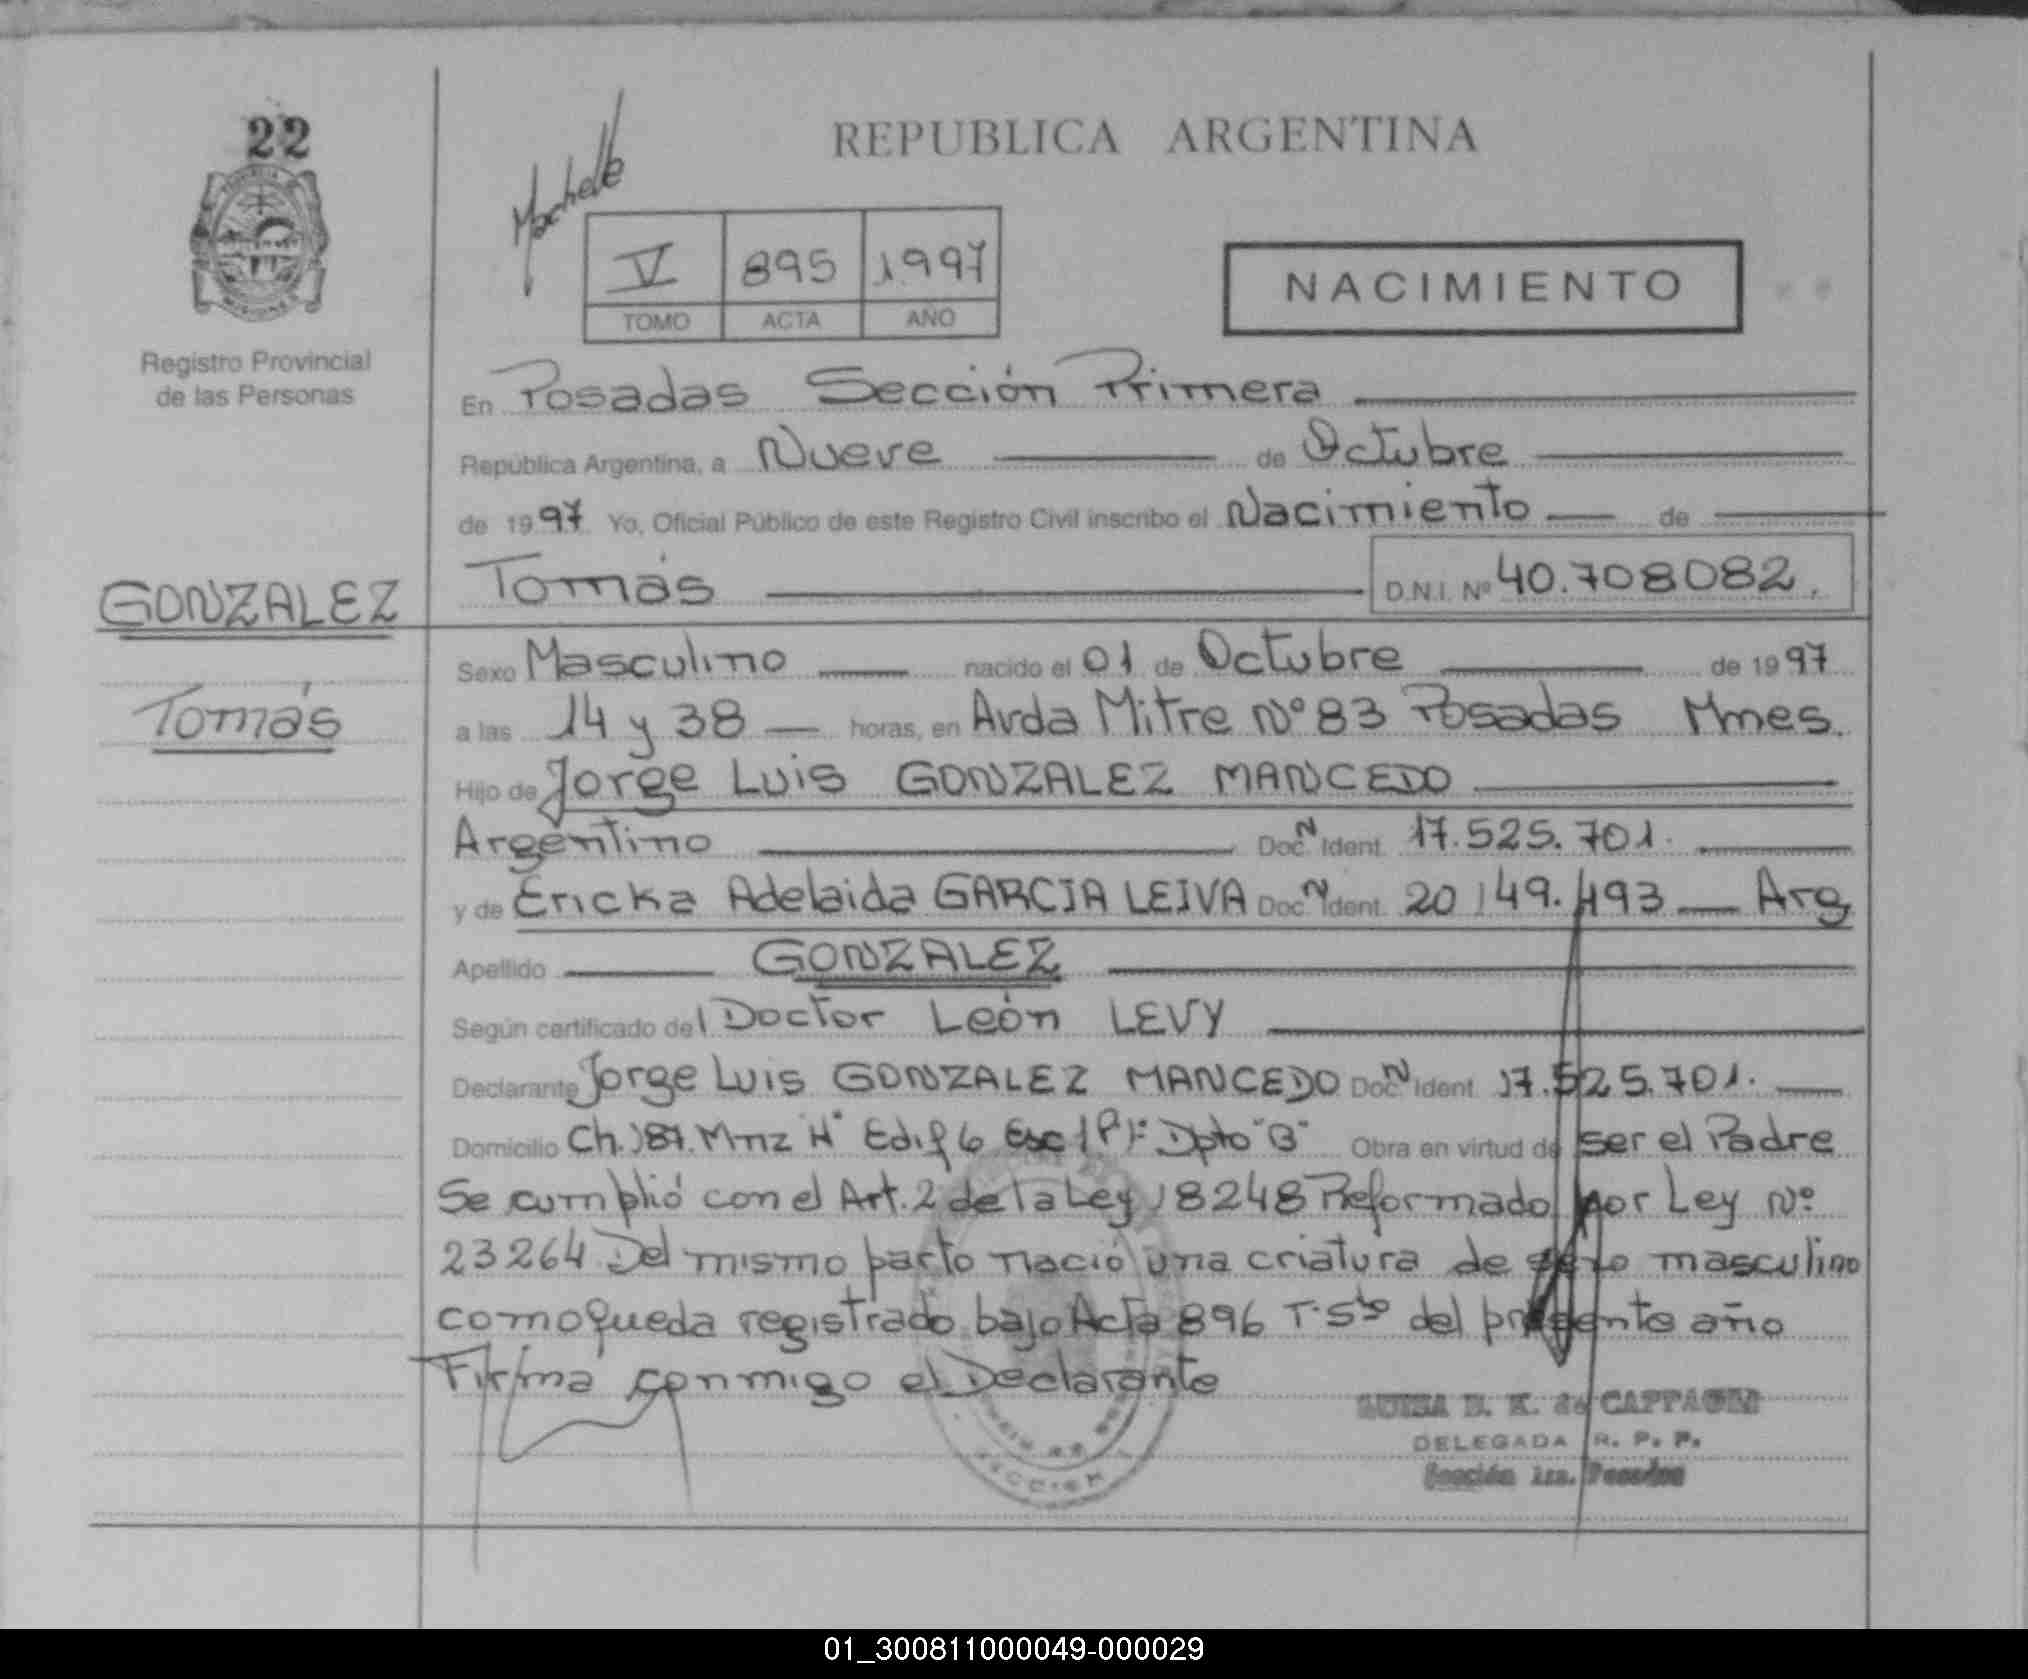 22
Machette
REPUBLICA ARGENTINA
V 895 1.997
TOMO ACTA AÑO
NACIMIENTO
Registro Provincial
de las Personas
En Posadas Sección Primera
República Argentina, a Nueve de Octubre
de 19 97 Yo, Oficial Público de este Registro Civil inscribo el Nacimiento de
Tomás D.N.I. Nº 40.708082.
GONZALEZ
Tomás
Sexo Masculino nacido el 01 de Octubre de 19 97
a las 14 y 38 horas, en Avda Mitre Nº 83 Posadas Mnes.
Hijo de Jorge Luis GONZALEZ MANCEDO
Argentino Doc. N Ident. 17.525.701.
y de Ericka Adelaida GARCIA LEIVA Doc. N Ident. 20 149.493 Arg
Apellido GONZALEZ
Según certificado del Doctor León LEVY
Declarante Jorge Luis GONZALEZ MANCEDO Doc. N Ident. 17.525.701.
Domicilio Ch. 187. Mnz "H" Edif 6 Esc 1 P 1º Dpto "B" Obra en virtud de ser el Padre
Se cumplió con el Art. 2 de la Ley 18248 Reformado por Ley Nº
23264 Del mismo parto nació una criatura de sexo masculino
como queda registrado bajo Acta 896 T. 5to del presente año
Firma conmigo el Declarante
LUISA D. K. de
DELEGADA R. P. P.
Sección 1ra. Posadas
SECCION 1
01_300811000049-000029